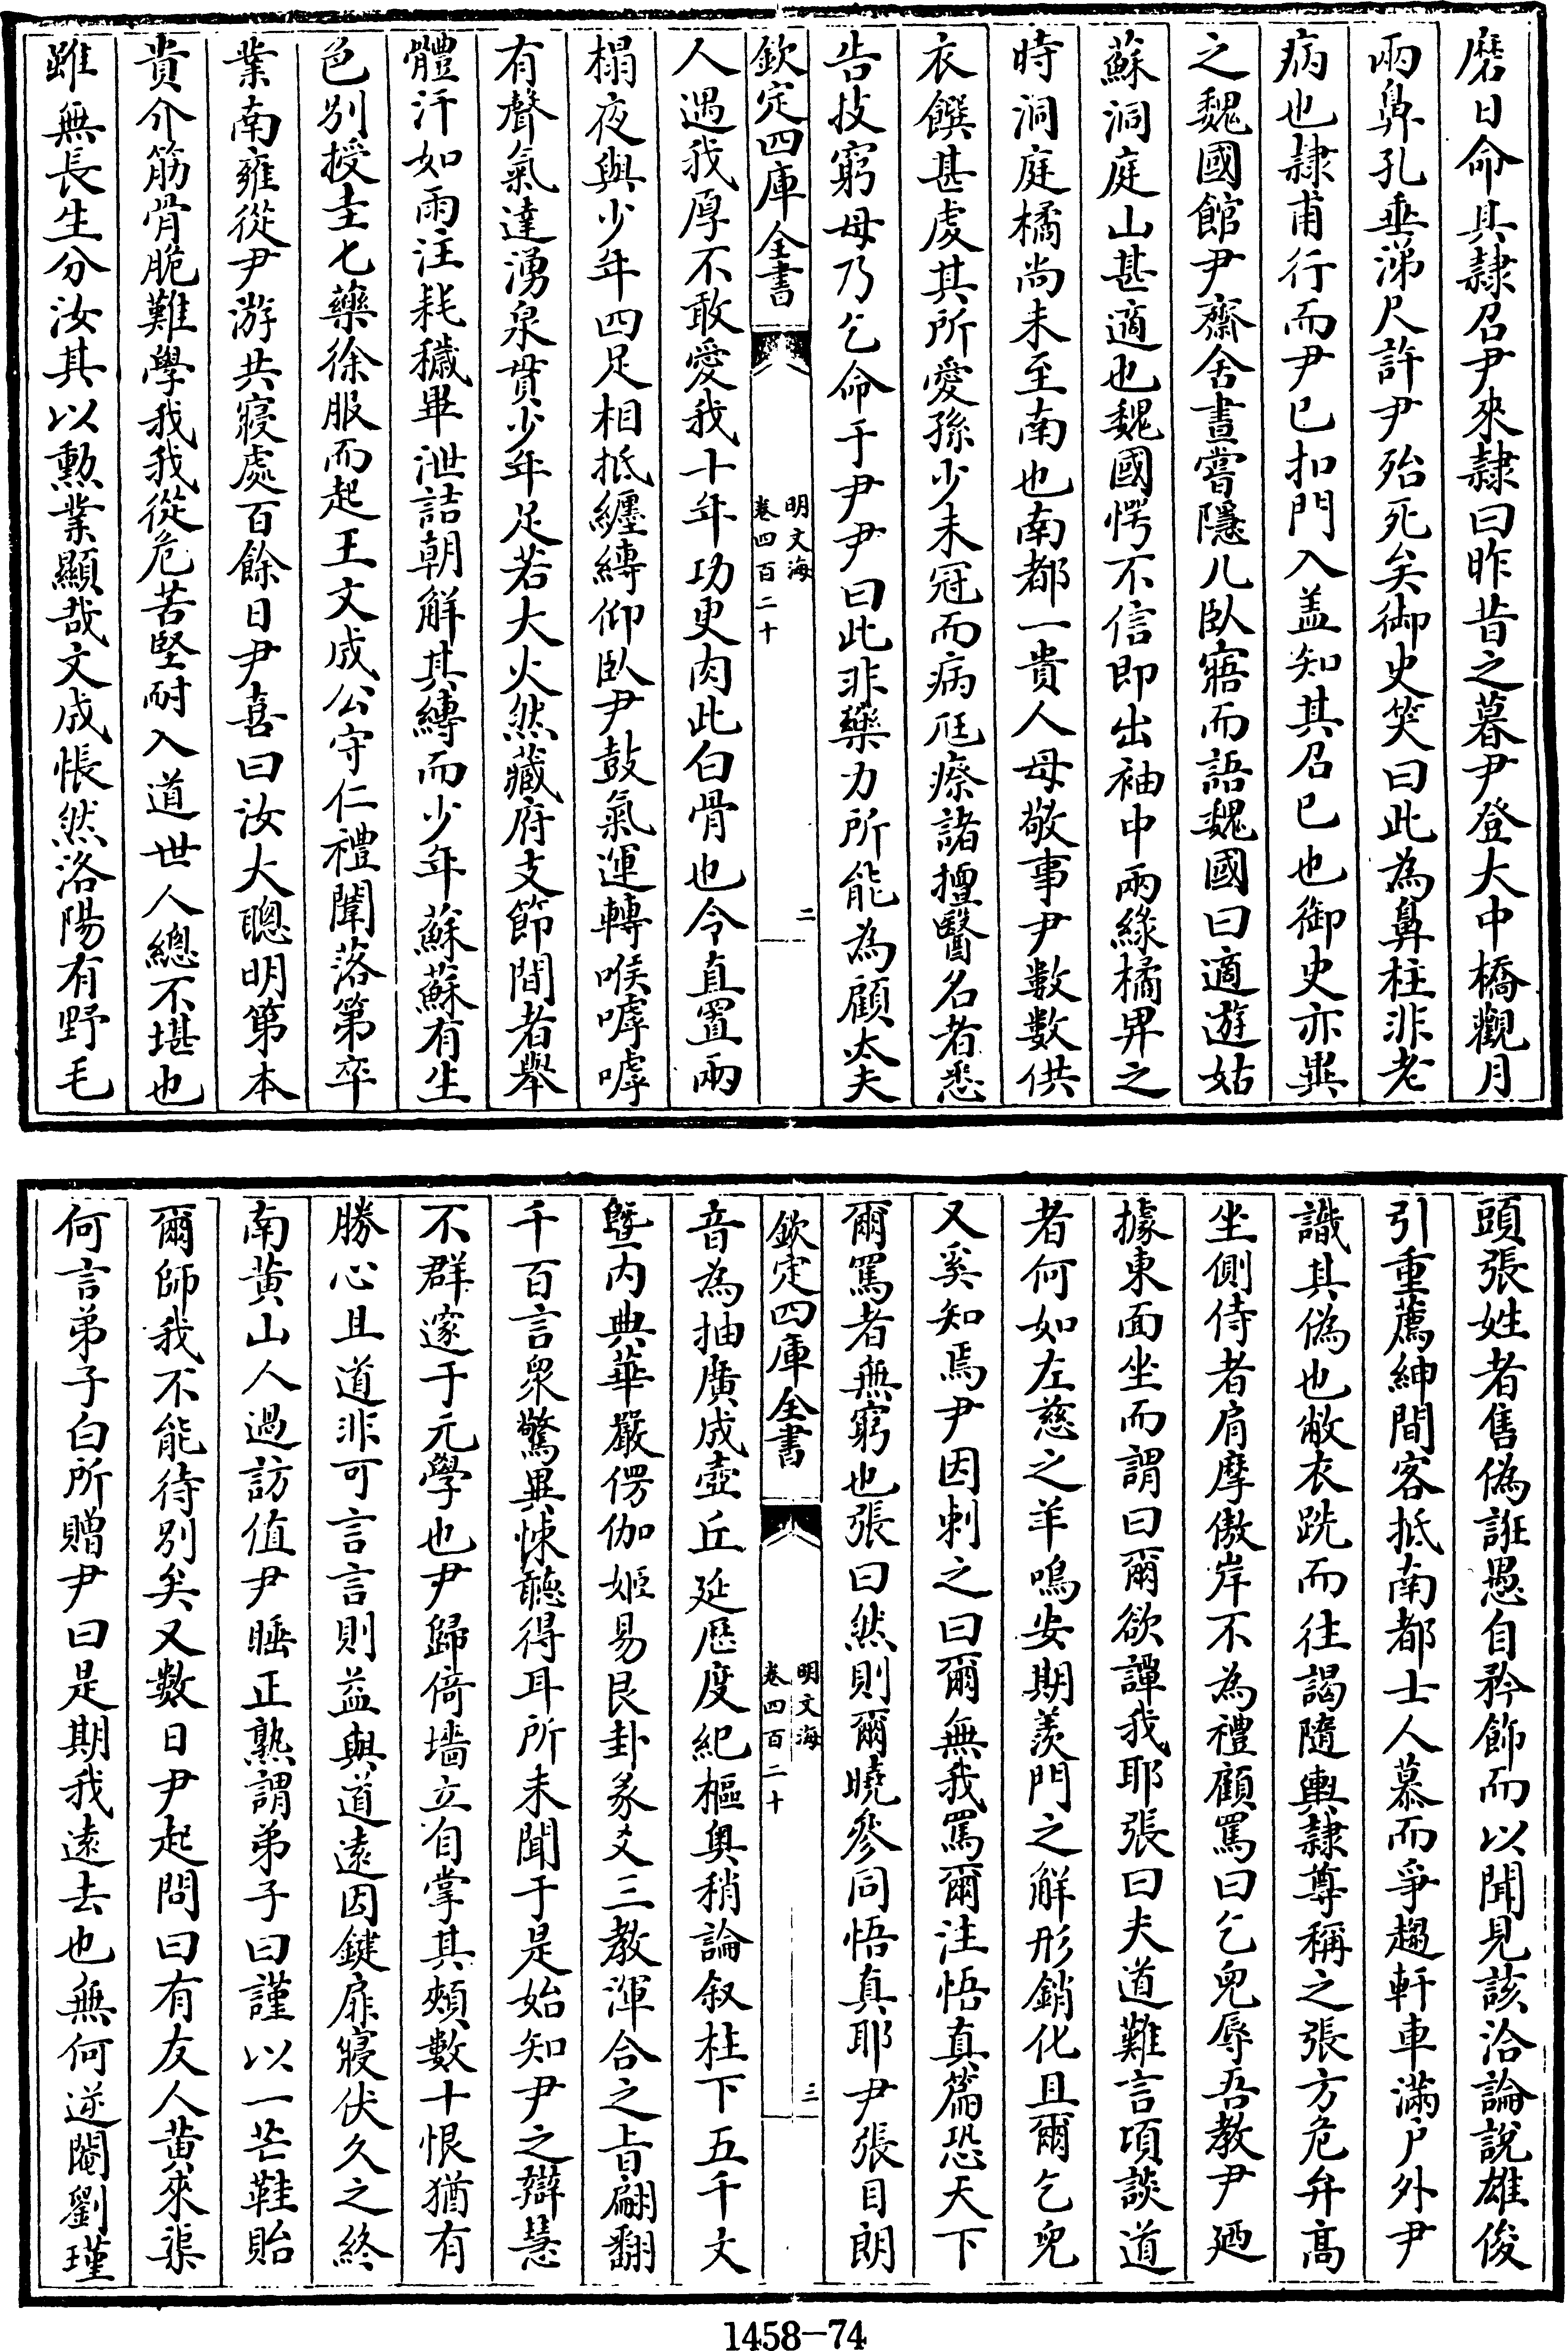 磨日命其隷召尹來隷曰昨昔之暮尹登大中橋觀月
兩鼻孔垂涕尺許尹殆死矣御史笑曰此為鼻柱非老
病也隷甫行而尹已扣門入盖知其召已也御史亦異
之魏國館尹齋舍晝嘗隱几臥寤而語魏國曰適遊姑
蘇洞庭山甚適也魏國愕不信即出袖中兩緣橘畀之
時洞庭橘尚未至南也南都一貴人母敬事尹數數供
衣饌甚䖍其所愛孫少未冠而病尫瘵諸擅醫名者悉
告技窮母乃乞命于尹尹曰此非藥力所能為顧太夫
欽定四庫全書
明文海
卷四百二十
二
人遇我厚不敢愛我十年功更肉此白骨也令直置兩
榻夜與少年四足相抵纒縳仰臥尹鼓氣運轉喉嘑嘑
有聲氣達湧泉貫少年足若大火然藏府支節間者舉
體汗如雨注耗穢畢泄詰朝解其縳而少年蘇蘇有生
色别授圭匕藥徐服而起王文成公守仁禮闈落第卒
業南雍從尹游共寢處百餘日尹喜曰汝大聰明第本
貴介筋骨脆難學我我從危苦堅耐入道世人總不堪也
雖無長生分汝其以勲業顯哉文成悵然洛陽有野毛
頭張姓者售偽誑愚自矜飾而以聞見該洽論說雄俊
引重薦紳間客抵南都士人慕而爭趨軒車滿户外尹
識其偽也敝衣跣而往謁隨輿隷尊稱之張方危弁高
坐側侍者肩摩傲岸不為禮顧罵曰乞兒辱吾教尹廼
據東面坐而謂曰爾欲譚我耶張曰夫道難言頃談道
者何如左慈之羊鳴安期羨門之解形銷化且爾乞兒
又奚知焉尹因刺之曰爾無我罵爾注悟真篇恐天下
爾罵者無窮也張曰然則爾曉參同悟真耶尹張目朗
欽定四庫全書
明文海
卷四百二十
三
音為抽廣成壺丘延歴度紀樞奥稍論叙柱下五千文
曁内典華嚴偐伽姬易艮卦彖爻三教渾合之㫖翩翻
千百言衆驚異悚聽得耳所未聞于是始知尹之辯慧
不群邃于元學也尹歸倚墻立自掌其頰數十恨猶有
勝心且道非可言言則益與道遠因鍵扉寢伏久之終
南黄山人過訪值尹睡正熟謂弟子曰謹以一芒鞋貽
爾師我不能待别矣又數日尹起問曰有友人黄來渠
何言弟子白所贈尹曰是期我遠去也無何逆閹劉瑾
1458-74